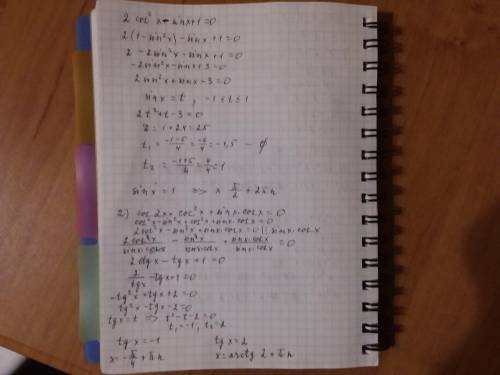 2 cos²x - sinx+1=0
2(1-sin²x)-sinx+1=0
2-2sin²x-sinx+1=0
-2sin²x-sinx+3=0
2sin²x+sinx-3=0
sinx=t, -1≤t≤1
2t²+t-3=0
D=1+24=25
t₁=(-1-5)/4=-6/4=-1,5 - ∅
t₂=(-1+5)/4=4/4=1
sinx=1 => x π/2+2πn
2) cos2x+cos²x+sinx·cosx=0
cos²x-sin²x+cos²x+sinx·cosx=0
2cos²x-sin²x+sinx·cosx=0 |: sinx·cosx
2cos²x/sinx·cosx - sin²x/sinx·cosx + sinx·cosx/sinx·cosx =0
2ctgx-tgx+1=0
2/tgx-tgx+1=0
-tg²x+tgx+2=0
tg²x-tgx-2=0
tgx=t => t²-t-2=0
t₁=-1, t₂=2
tgx=-1 tgx=2
x=-π/4+πn x=arctg2+πn